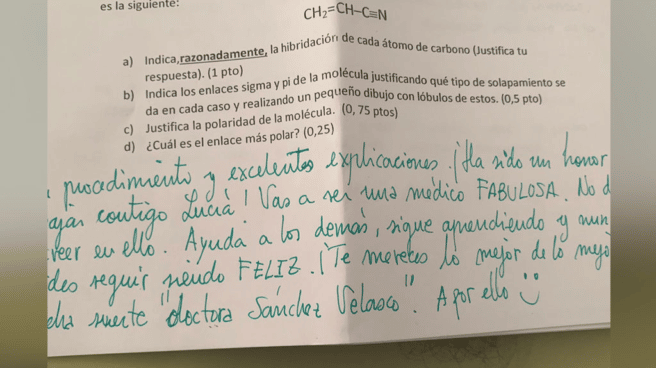 es la siguiente:
CH₂=CH–C≡N
a) Indica, razonadamente, la hibridación de cada átomo de carbono (Justifica tu
respuesta). (1 pto)
b) Indica los enlaces sigma y pi de la molécula justificando qué tipo de solapamiento se
da en cada caso y realizando un pequeño dibujo con lóbulos de estos. (0,5 pto)
c) Justifica la polaridad de la molécula. (0, 75 ptos)
d) ¿Cuál es el enlace más polar? (0,25)
procedimiento y excelentes explicaciones. ¡Ha sido un honor
contigo Lucía! Vas a ser una médico FABULOSA. No d
reer en ello. Ayuda a los demás, sigue aprendiendo y nun
des seguir siendo FELIZ. ¡Te mereces lo mejor de lo mejo
cha suerte "doctora Sánchez Velasco". A por ello